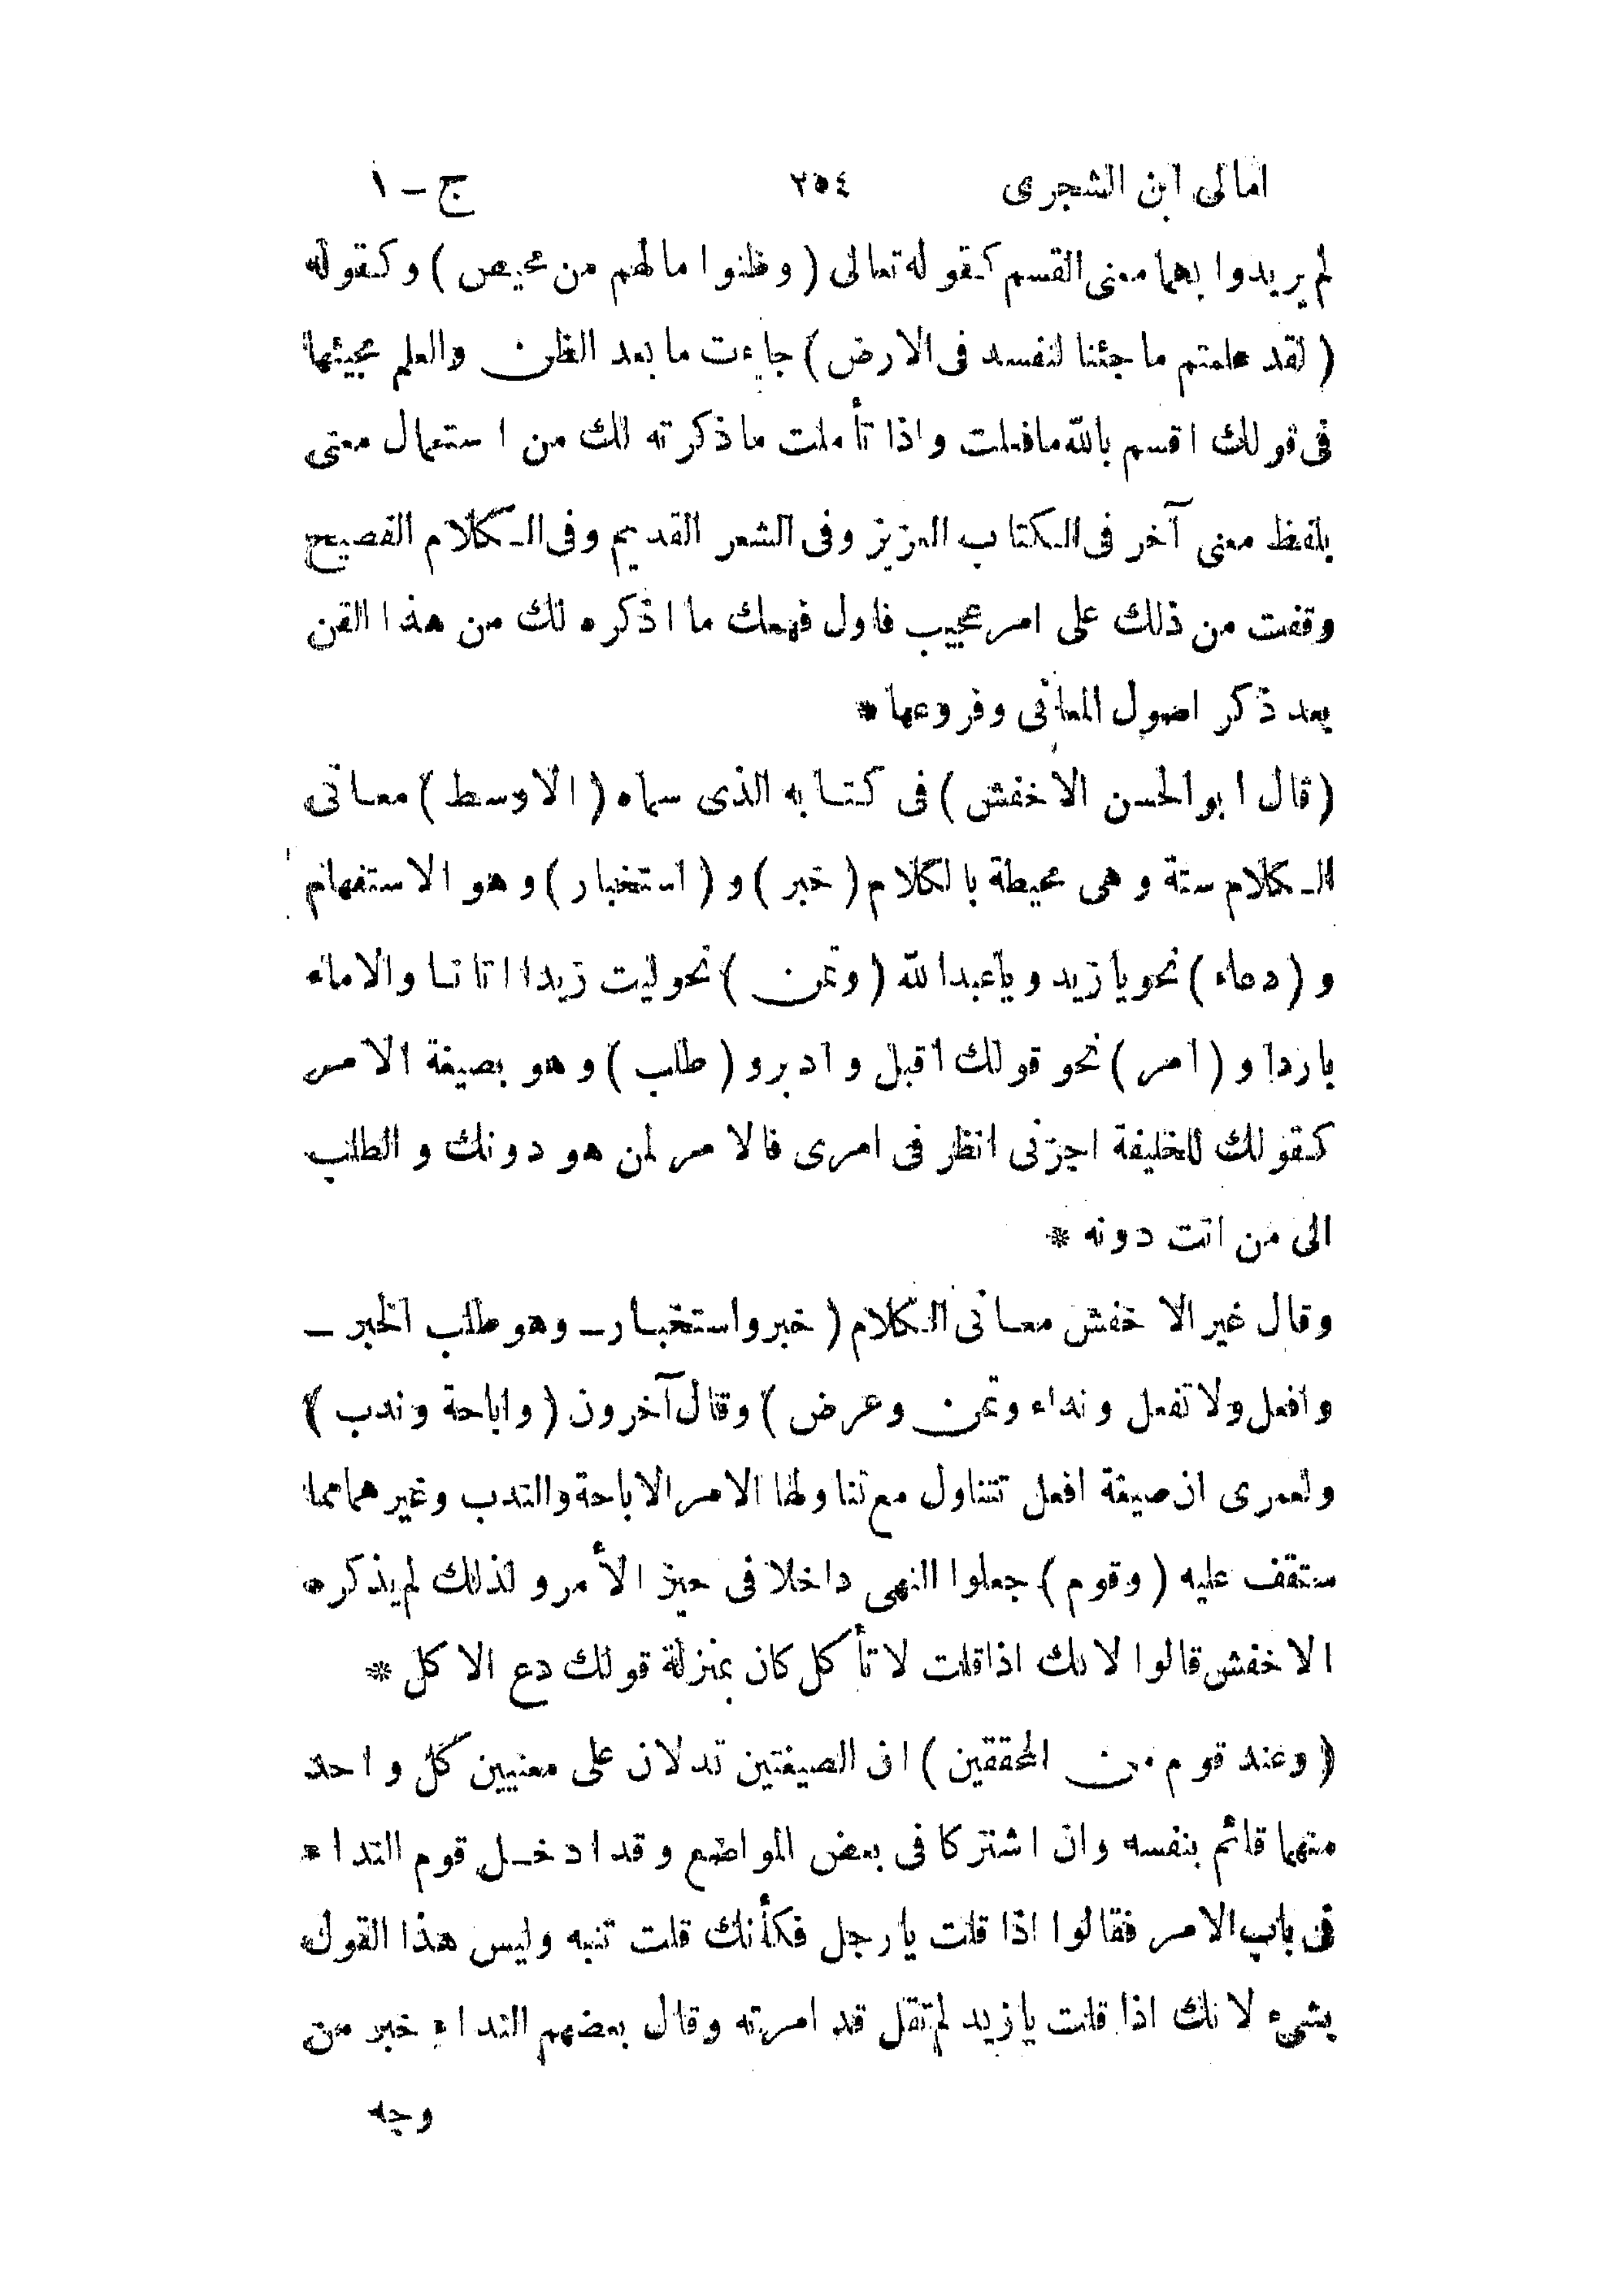 امالى ابن الشجرى ٢٥٤ ج - ١
لم يريدوا بهما معنى القسم كقوله تعالى ( وظنوا مالهم من محيص ) وكقوله
( لقد علمتم ما جئنا لنفسد فى الارض ) جاءت ما بعد الظن والعلم مجيئها
فى قولك اقسم بالله ما فعلت واذا تأملت ما ذكرته لك من استعمال معنى
بلفظ معنى آخر فى الكتاب العزيز وفى الشعر القديم وفى الكلام الفصيح
وقفت من ذلك على امر عجيب فاول فهمك ما اذكره لك من هذا الفن
بعد ذكر اصول المعانى وفروعها *
( قال ابو الحسن الاخفش ) فى كتابه الذى سماه ( الاوسط ) معانى
الكلام ستة وهى محيطة بالكلام ( خبر ) و ( استخبار ) وهو الاستفهام
و ( دعاء ) نحو يا زيد ويا عبد الله ( وتمن ) نحو ليت زيدا اتانا والاماء
باردا و ( امر ) نحو قولك اقبل وادبر و ( طلب ) وهو بصيغة الامر
كقولك للخليفة اجزنى انظر فى امرى فالامر لمن هو دونك والطلب
الى من انت دونه *
وقال غير الاخفش معانى الكلام ( خبر واستخبار - وهو طلب الخبر -
وافعل ولا تفعل ونداء وتمن وعرض ) وقال آخرون ( واباحة وندب )
ولعمرى ان صيغة افعل تتناول مع تناولها الامر الاباحة والندب وغيرهما مما
ستقف عليه ( وقوم ) جعلوا النهى داخلا فى حيز الأمر ولذلك لم يذكره
الاخفش قالوا لانك اذا قلت لا تأكل كان بمنزلة قولك دع الاكل *
( وعند قوم من المحققين ) ان الصيغتين تدلان على معنيين كل واحد
منهما قائم بنفسه وان اشتركا فى بعض المواضع وقد ادخل قوم النداء
فى باب الامر فقالوا اذا قلت يا رجل فكأنك قلت تنبه وليس هذا القول
بشىء لانك اذا قلت يا زيد لم تقل قد امرته وقال بعضهم النداء خبر من
وجه